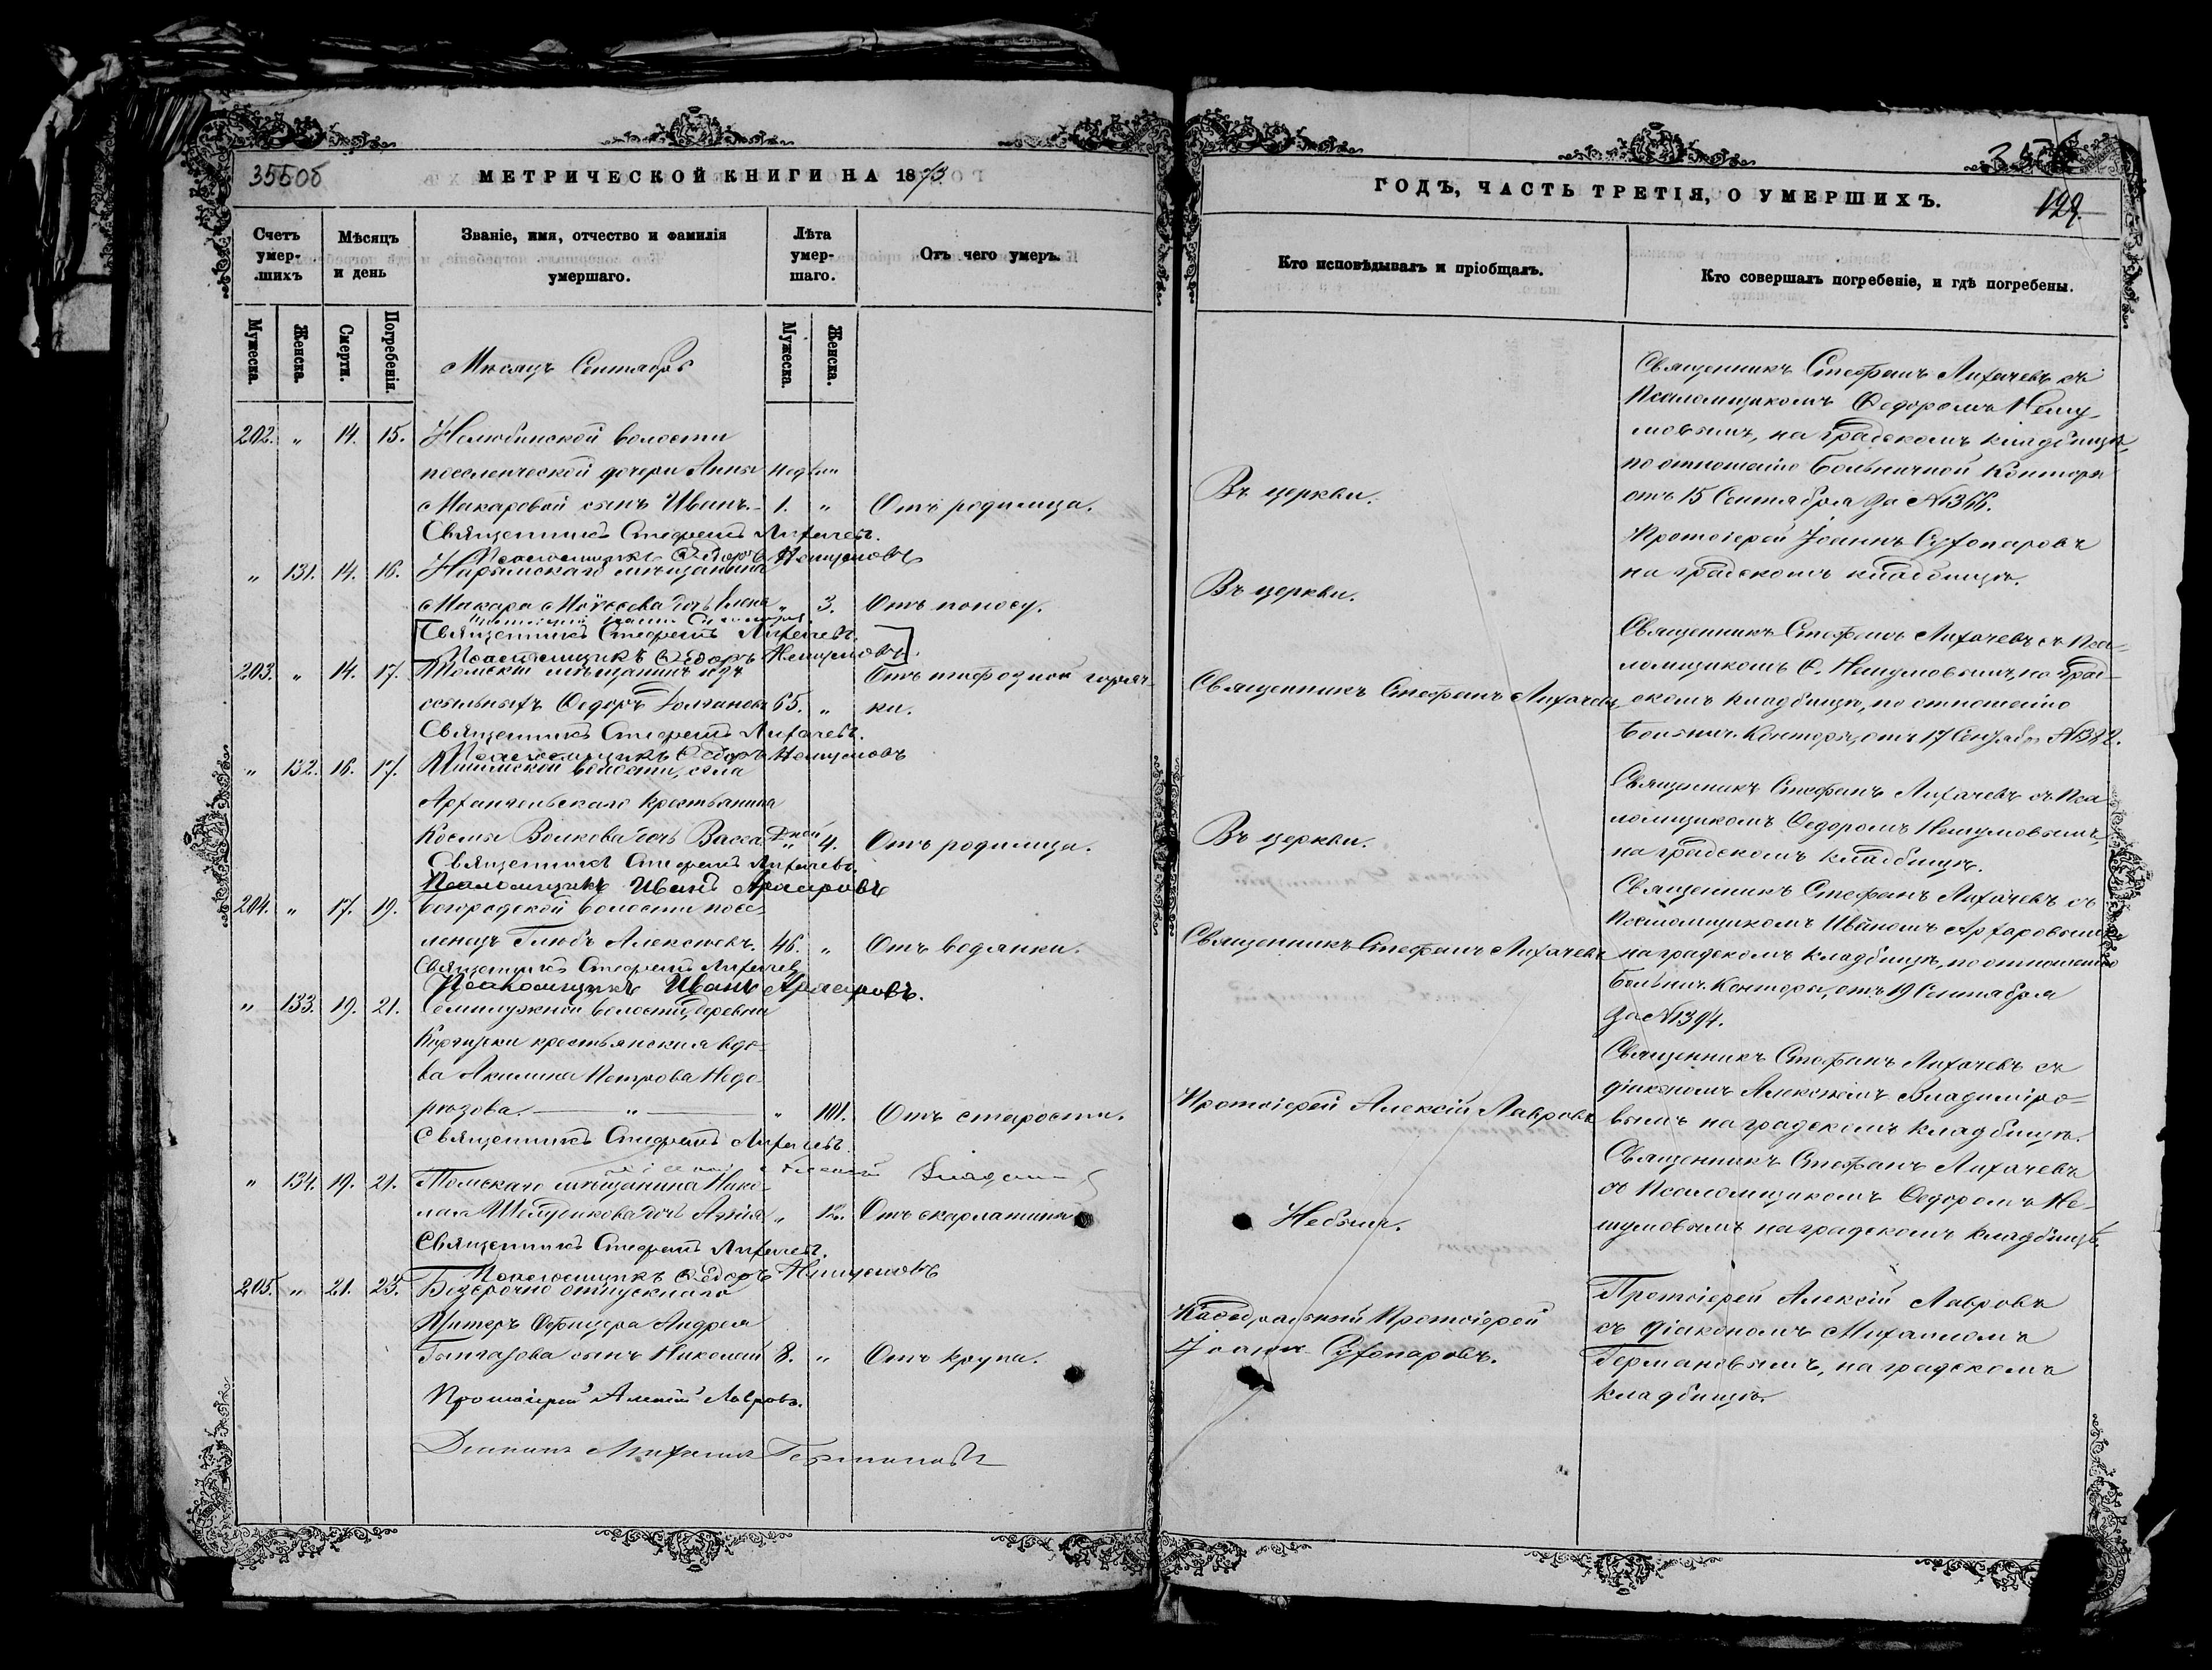 355об
МЕТРИЧЕСКОЙ КНИГИ НА 1873
Счетъ умер-шихъ
Мѣсяцъ и день
Званіе, имя, отчество и фамилія умершаго.
Лѣта умер-шаго.
Отъ чего умеръ.
Мужеска.
Женска.
Смерти.
Погребенія.
Мужеска.
Женска.
Мѣсяцъ Сентябрь
202. " 14. 15. Нелюбинской волости
поселенческой дочери Анны недѣли
Макаровой сынъ Иванъ. 1. " Отъ родимца.
Священникъ Стефанъ Лихачевъ.
Псаломщикъ Ѳедоръ Нешумовъ
" 131. 14. 16. Нарымскаго мѣщанина
Макара Мойсеева дочь Елена " 3. Отъ поносу.
Священникъ Стефанъ Лихачевъ.
Псаломщикъ Ѳедоръ Нешумовъ.
203. " 14. 17. Томскій мѣщанинъ изъ Отъ тифозной горяч-
ссыльныхъ Ѳедоръ Долгановъ 65. " ки.
Священникъ Стефанъ Лихачевъ.
Псаломщикъ Ѳедоръ Нешумовъ
" 132. 16. 17. Ишимской волости, села
Архангельскаго крестьянина
Космы Волкова дочь Васса Дней 4. Отъ родимца.
Священникъ Стефанъ Лихачевъ.
Псаломщикъ Иванъ Архаровъ
204. " 17. 19. Богородской волости посе-
ленецъ Глѣбъ Алексѣевъ. 46. " Отъ водянки.
Священникъ Стефанъ Лихачевъ
Псаломщикъ Иванъ Архаровъ.
" 133. 19. 21. Семилужной волости, деревни
крестьянская вдо-
ва Акилина Петрова Недо-
рѣзова. " " 101. Отъ старости.
Священникъ Стефанъ Лихачевъ.
" 134. 19. 21. Томскаго мѣщанина Нико-
лая дочь " 12. Отъ скарлатины
Священникъ Стефанъ Лихачевъ.
Псаломщикъ Ѳедоръ Нешумовъ
205. " 21. 23. Безсрочно отпускнаго
Унтеръ Офицера Андрея
сынъ Николай 8. " Отъ крупа.
Протоіерей Алексій Лавровъ.
Діаконъ Михаилъ Германовъ
ГОДЪ, ЧАСТЬ ТРЕТІЯ, О УМЕРШИХЪ.
129
Кто исповѣдывалъ и пріобщалъ.
Кто совершалъ погребеніе, и гдѣ погребены.
Священникъ Стефанъ Лихачевъ съ
Псаломщикомъ Ѳедоромъ Нешу-
мовымъ, на градскомъ кладбищѣ,
по отношенію Больничной Конторы
Въ церкви. отъ 15 Сентября за №1366.
Протоіерей Іоаннъ Сухопаровъ
Въ церкви. на градскомъ кладбищѣ.
Священникъ Стефанъ Лихачевъ съ Пса-
ломщикомъ Ѳ. Нешумовымъ, на град-
Священникъ Стефанъ Лихачевъ скомъ кладбищѣ, по отношенію
Больнич. Конторы, отъ 17 Сентября №1382.
Священникъ Стефанъ Лихачевъ съ Пса-
ломщикомъ Ѳедоромъ Нешумовымъ,
Въ церкви. на градскомъ кладбищѣ.
Священникъ Стефанъ Лихачевъ съ
Псаломщикомъ Иваномъ Архаровымъ
Священникъ Стефанъ Лихачевъ на градскомъ кладбищѣ, по отношенію
Больнич. Конторы, отъ 19 Сентября
за №1394.
Священникъ Стефанъ Лихачевъ съ
діакономъ Алексѣемъ Владиміро-
Протоіерей Алексій Лавровъ вымъ на градскомъ кладбищѣ.
Священникъ Стефанъ Лихачевъ
съ Псаломщикомъ Ѳедоромъ Не-
Небыла. шумовымъ на градскомъ кладбищѣ.
Протоіерей Алексій Лавровъ
Каѳедральный Протоіерей съ діакономъ Михаиломъ
Іоаннъ Сухопаровъ. Германовымъ, на градскомъ
кладбищѣ.